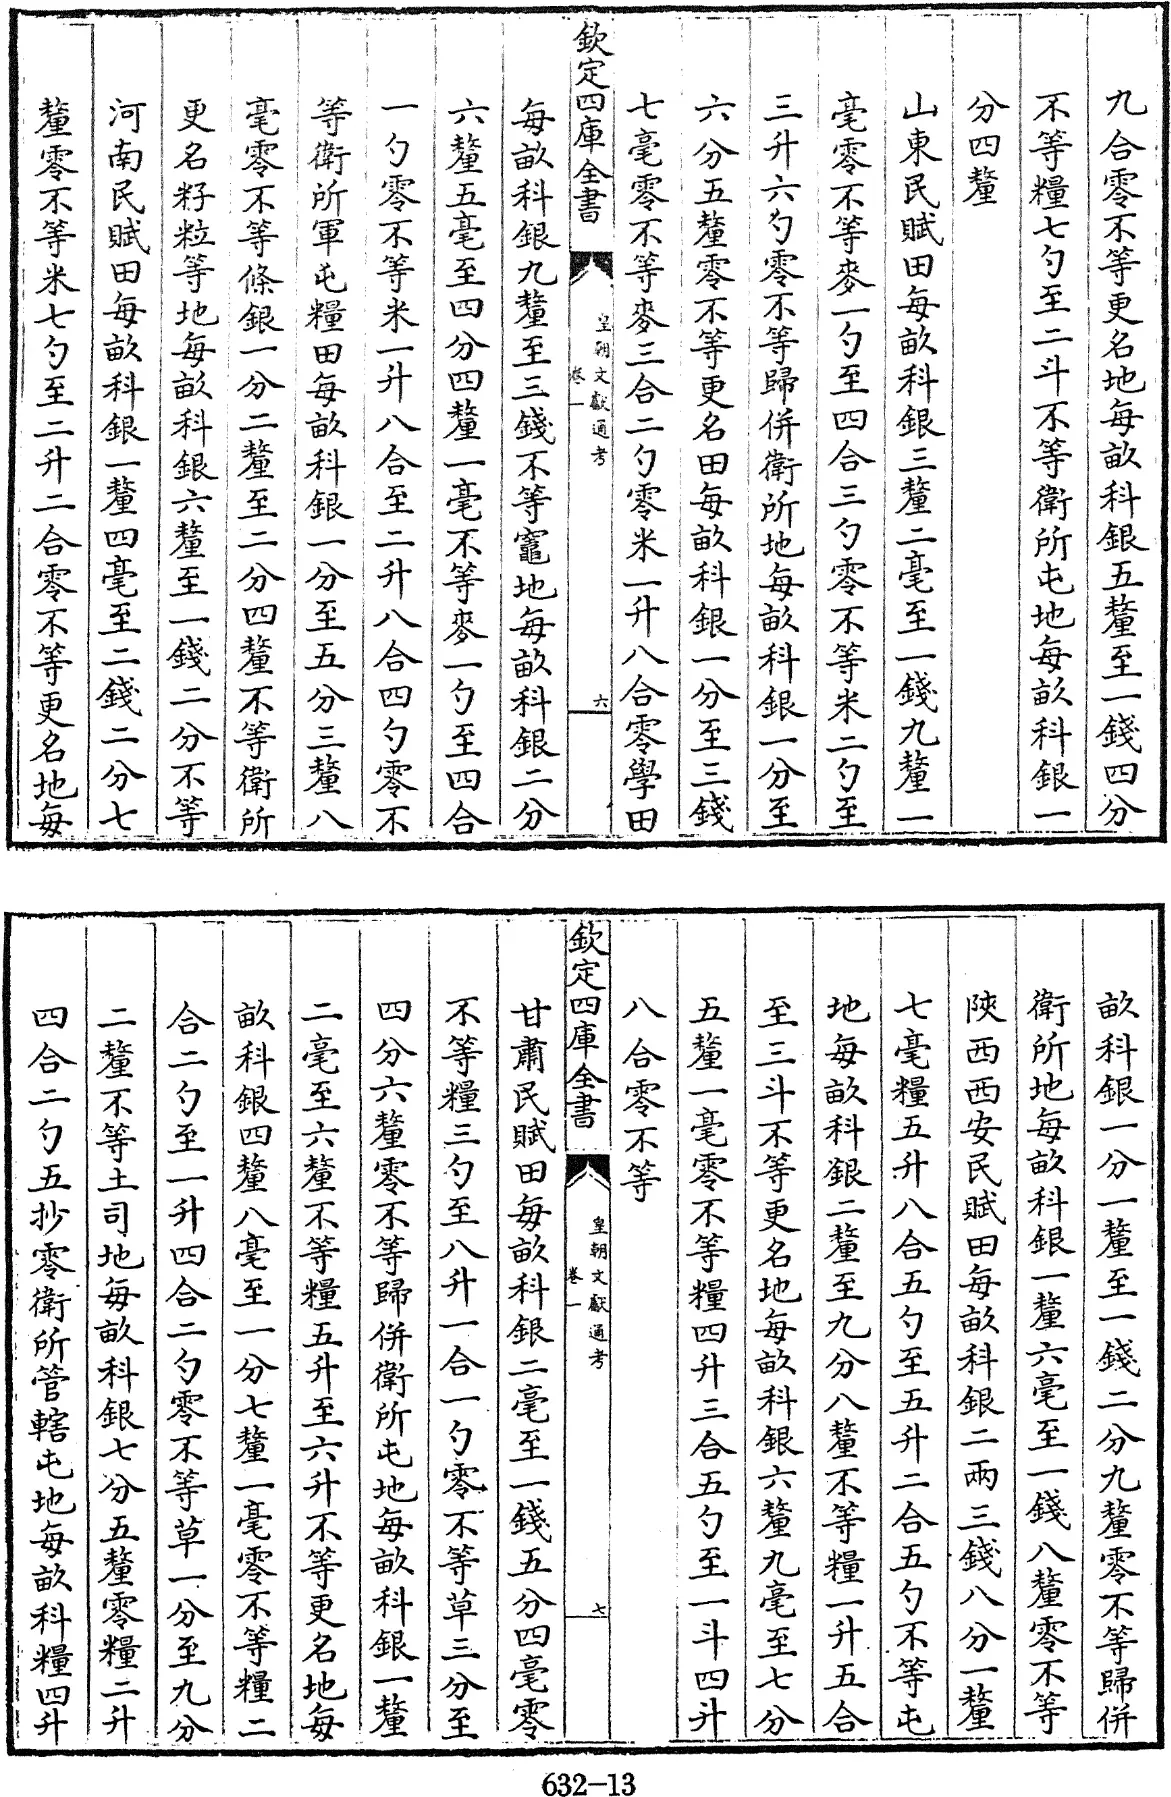 九合零不等更名地每畝科銀五釐至一錢四分
不等糧七勺至二斗不等衛所屯地每畝科銀一
分四釐
山東民賦田每畝科銀三釐二毫至一錢九釐一
毫零不等麥一勺至四合三勺零不等米二勺至
三升六勺零不等歸併衛所地每畝科銀一分至
六分五釐零不等更名田每畝科銀一分至三錢
七毫零不等麥三合二勺零米一升八合零學田
欽定四庫全書
皇朝文獻通考
卷一
六
每畝科銀九釐至三錢不等竈地每畝科銀二分
六釐五毫至四分四釐一毫不等麥一勺至四合
一勺零不等米一升八合至二升八合四勺零不
等衛所軍屯糧田每畝科銀一分至五分三釐八
毫零不等條銀一分二釐至二分四釐不等衛所
更名籽粒等地每畝科銀六釐至一錢二分不等
河南民賦田每畝科銀一釐四毫至二錢二分七
釐零不等米七勺至二升二合零不等更名地每
畝科銀一分一釐至一錢二分九釐零不等歸併
衛所地每畝科銀一釐六毫至一錢八釐零不等
陝西西安民賦田每畝科銀二兩三錢八分一釐
七毫糧五升八合五勺至五升二合五勺不等屯
地每畝科銀二釐至九分八釐不等糧一升五合
至三斗不等更名地每畝科銀六釐九毫至七分
五釐一毫零不等糧四升三合五勺至一斗四升
八合零不等
欽定四庫全書
皇朝文獻通考
卷一
七
甘肅民賦田每畝科銀二毫至一錢五分四毫零
不等糧三勺至八升一合一勺零不等草三分至
四分六釐零不等歸併衛所屯地每畝科銀一釐
二毫至六釐不等糧五升至六升不等更名地每
畝科銀四釐八毫至一分七釐一毫零不等糧二
合二勺至一升四合二勺零不等草一分至九分
二釐不等土司地每畝科銀七分五釐零糧二升
四合二勺五抄零衛所管轄屯地每畝科糧四升
632-13